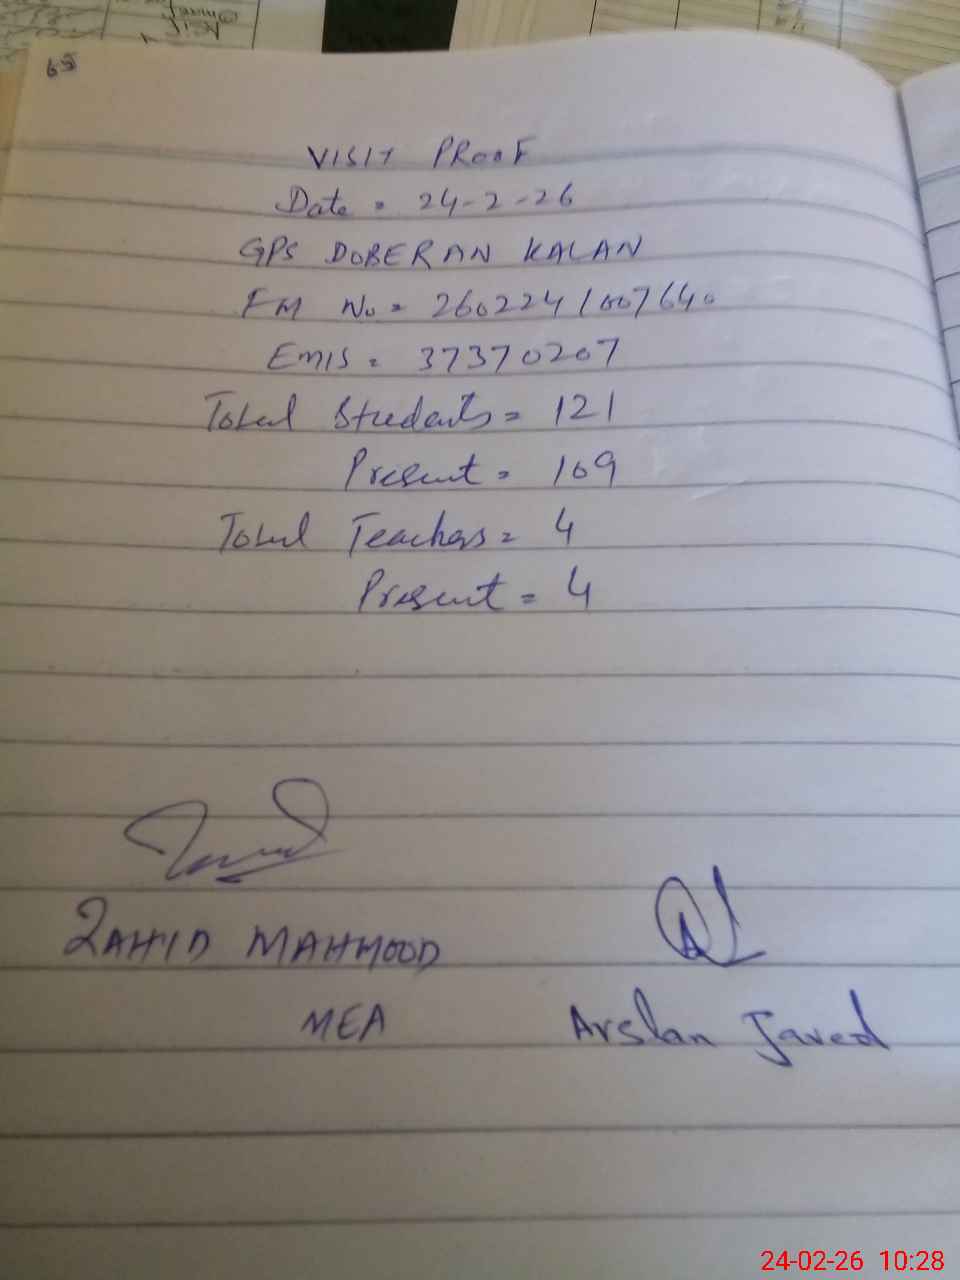 65
VISIT PROOF
Date = 24-2-26
GPS DOBERAN KALAN
FM No = 260224/007640
EMIS = 37370207
Total Students = 121
Present = 109
Total Teachers = 4
Present = 4
ZAHID MAHMOOD
MEA
Arslan Javed
24-02-26 10:28